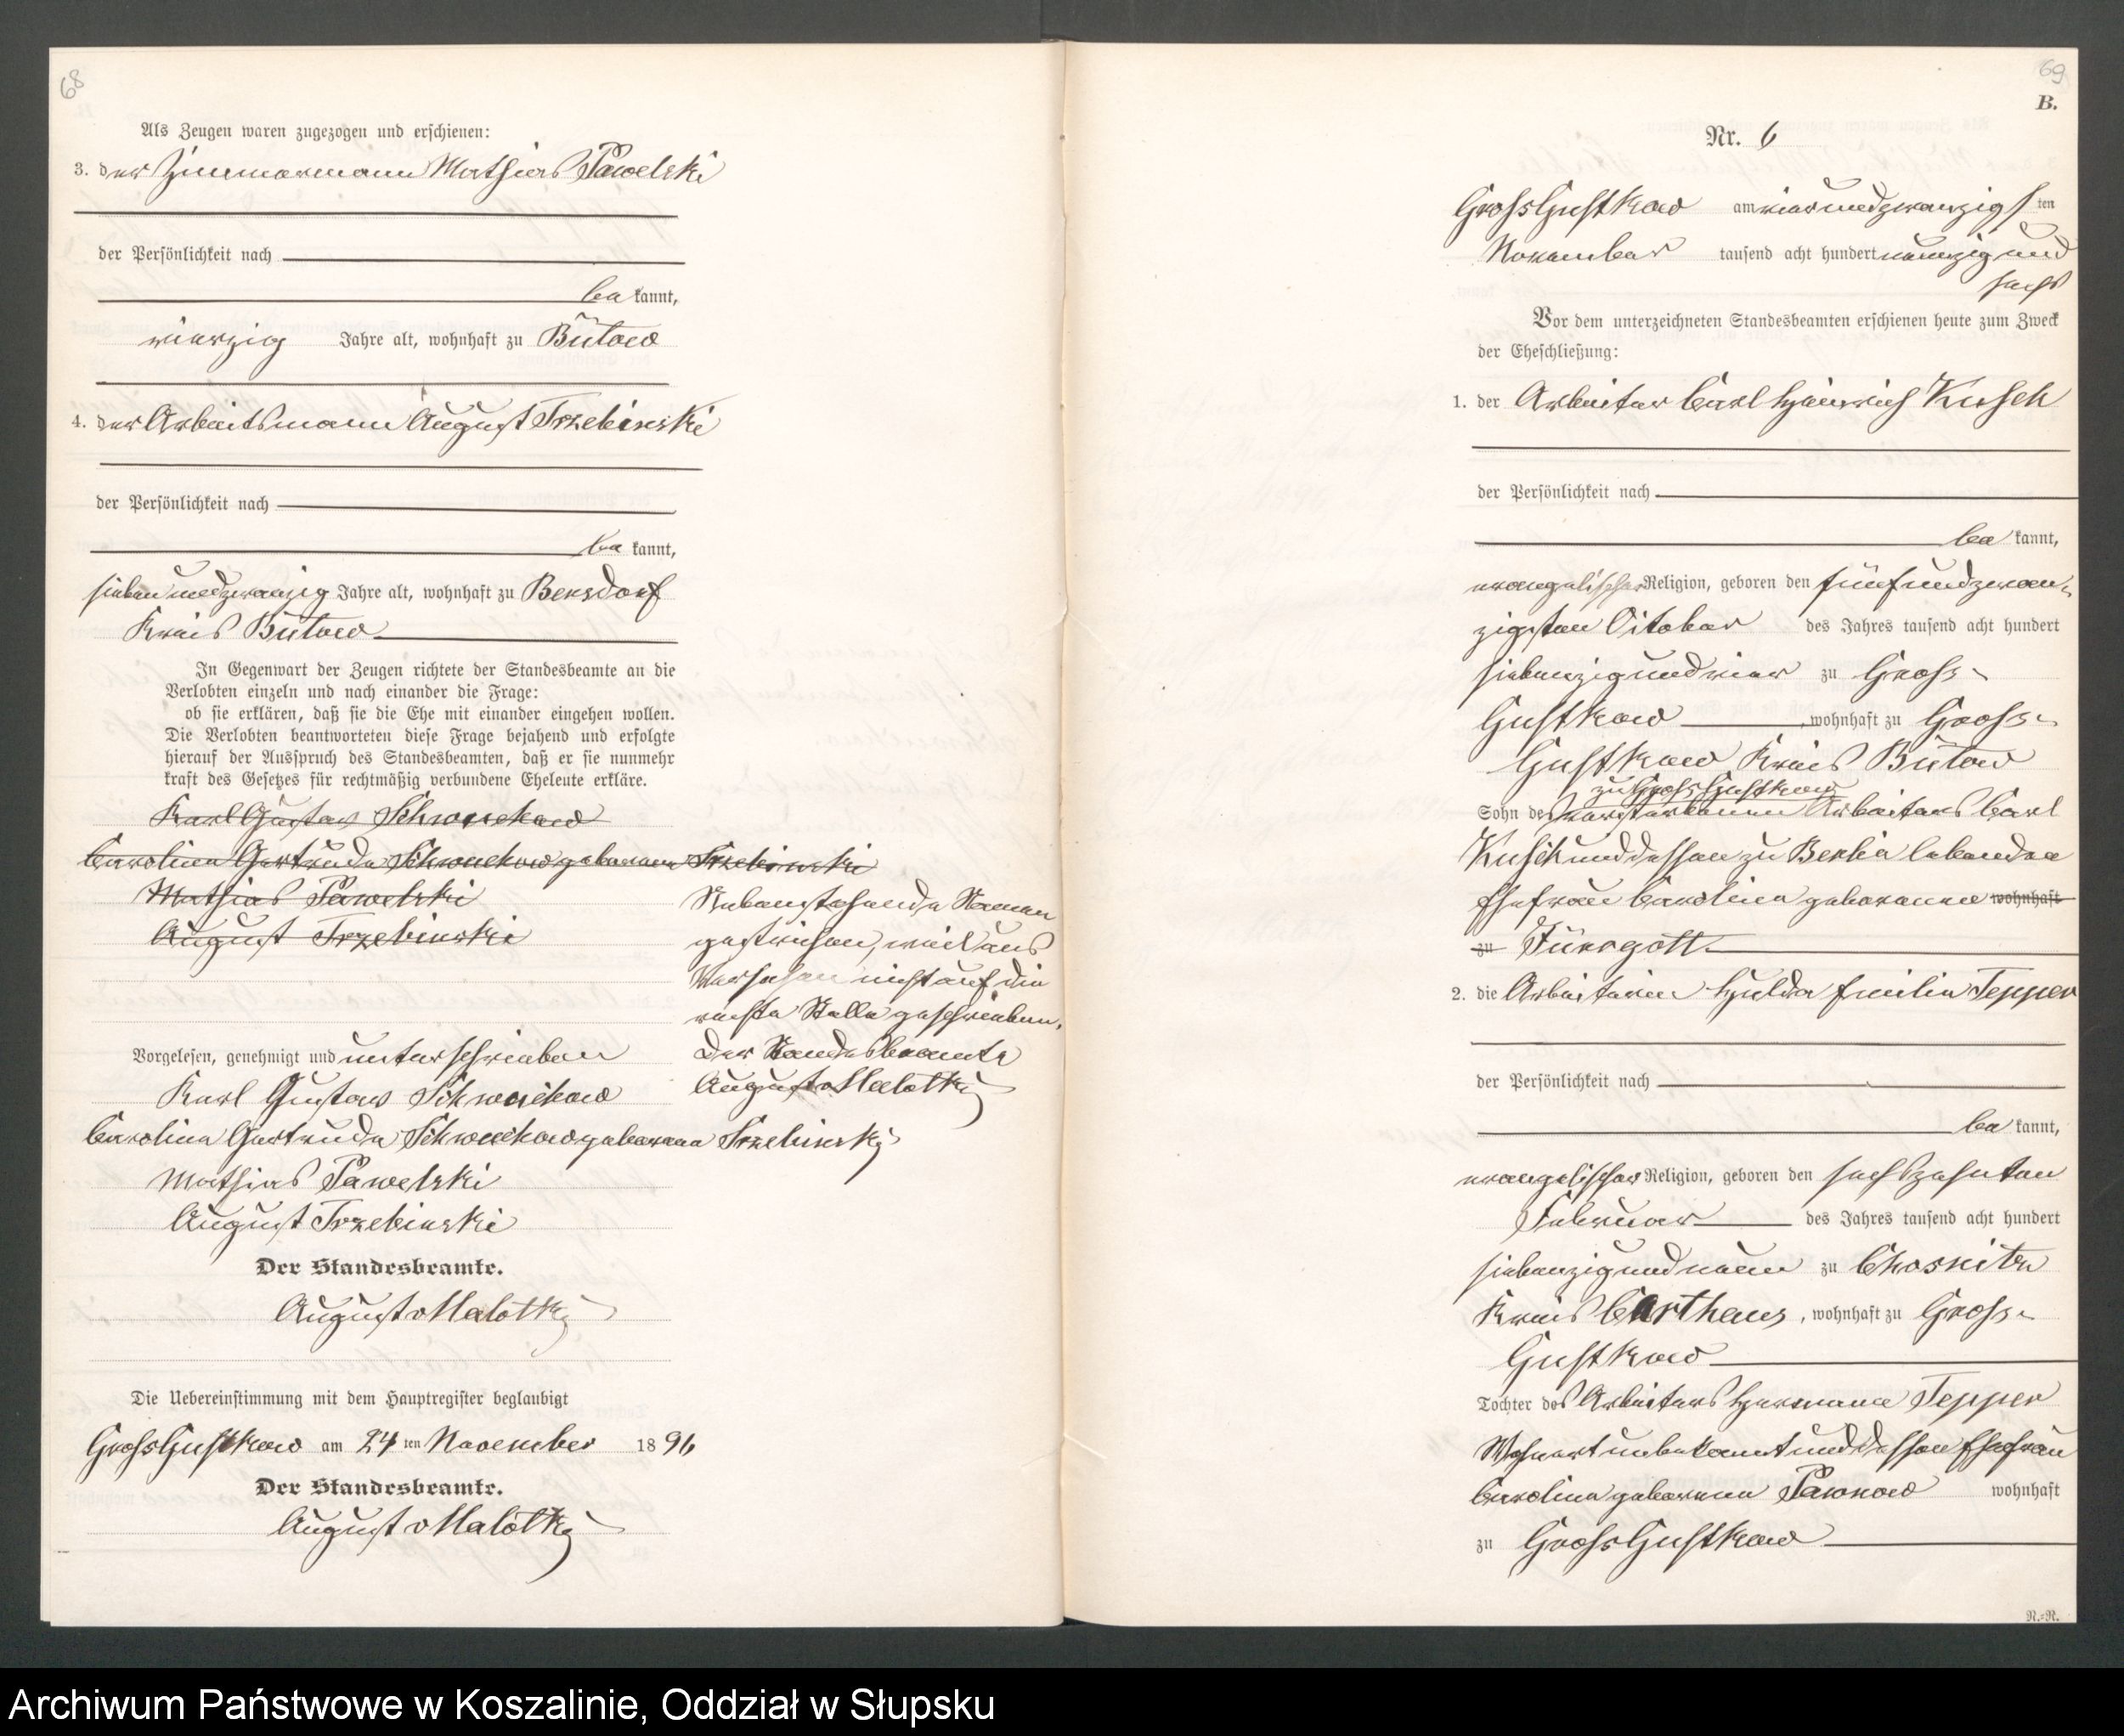 68
Als Zeugen waren zugezogen und erschienen:
3. der Zimmermann Mathias Pawelski
der Persönlichkeit nach
be kannt,
vierzig Jahre alt, wohnhaft zu Bütow
4. der Arbeitsmann August Trzebinski
der Persönlichkeit nach
be kannt,
siebenundzwanzig Jahre alt, wohnhaft zu Bernsdorf
Kreis Bütow
In Gegenwart der Zeugen richtete der Standesbeamte an die
Verlobten einzeln und nach einander die Frage:
ob sie erklären, daß sie die Ehe mit einander eingehen wollen.
Die Verlobten beantworteten diese Frage bejahend und erfolgte
hierauf der Ausspruch des Standesbeamten, daß er sie nunmehr
kraft des Gesetzes für rechtmäßig verbundene Eheleute erkläre.
Karl Gustav Schwuchow
Carolina Gertrude Schwuchow geborene Trzebinski
Mathias Pawelski
August Trzebinski
Nebenstehende Namen
gestrichen, weil aus
Versehen nicht auf die
rechte Stelle geschrieben.
Der Standesbeamte
August v Malottki
Vorgelesen, genehmigt und unterschrieben
Karl Gustav Schwuchow
Carolina Gertrude Schwuchow geborene Trzebinski
Mathias Pawelski
August Trzebinski
Der Standesbeamte.
August v Malottki
Die Uebereinstimmung mit dem Hauptregister beglaubigt
Gross Gustkow am 24 ten November 1896
Der Standesbeamte.
August v Malottki
69
B.
Nr. 6
Gross Gustkow am vierundzwanzigs ten
November tausend acht hundert neunzig und
sechs
Vor dem unterzeichneten Standesbeamten erschienen heute zum Zweck
der Eheschließung:
1. der Arbeiter Carl Heinrich Kusch
der Persönlichkeit nach
be kannt,
evangelischer Religion, geboren den fünfundzwan-
zigsten October des Jahres tausend acht hundert
siebenzigundvier zu Gross-
Gustkow, wohnhaft zu Gross-
Gustkow Kreis Bütow
zu Gross Gustkow
Sohn des verstorbenen Arbeiters Carl
Kusch und dessen zu Berlin lebenden
Ehefrau Carolina geborenen wohnhaft
zu Fürgott
2. die Arbeiterin Hulda Emilie Tepper
der Persönlichkeit nach
be kannt,
evangelischer Religion, geboren den sechszehnten
Februar des Jahres tausend acht hundert
siebenzigundneun zu Chosnitz
Kreis Carthaus, wohnhaft zu Gross-
Gustkow
Tochter des Arbeiters Hermann Tepper
Wohnort unbekannt und dessen Ehefrau
Carolina geborene wohnhaft
zu Gross Gustkow
N.-N.
Archiwum Państwowe w Koszalinie, Oddział w Słupsku